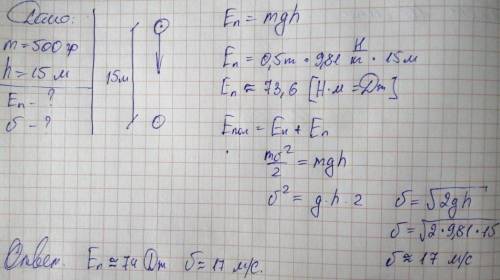 Дано:
m = 500 гр
h = 15 м
Eп - ?
υ - ?
15м
Eп = mgh
Eп = 0,5т · 9,81 Н/т · 15м
Eп ≈ 73,6 [Н·м = Dm]
Eпол = Eк + Eп
mυ²/2 = mgh
υ² = g·h·2
υ = √2gh
υ = √2·9,81·15
υ ≈ 17 м/с
Ответ. Eп ≈ 74 Dm υ ≈ 17 м/с.